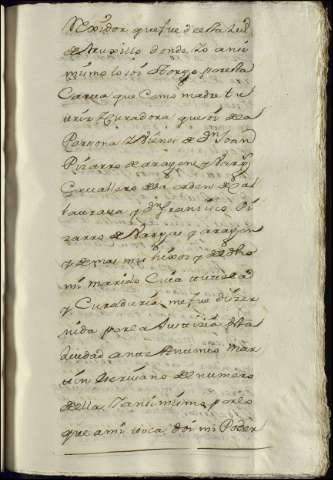 Rexidor que fue desta ciud
de truxillo donde lo an si
mismo lo soi otorgo por esta
Carta que Como madre tu
triz y Curadora que soi de la
Persona y Vienes de Dn Joan
Pizarro de aragon y
Cavallero de la orden de Cal
y Dn francisco Pi
zarro de Vargas y aragon
y de mas mis hixos y de dho
mi marido Cuia tutela
y Curaduria me fue dizer
nida por la Justizia desta
ciudad ante Antonio Mar
tin escrivano de numero
della Y ansi mismo por lo
que a mi toca doi mi Poder